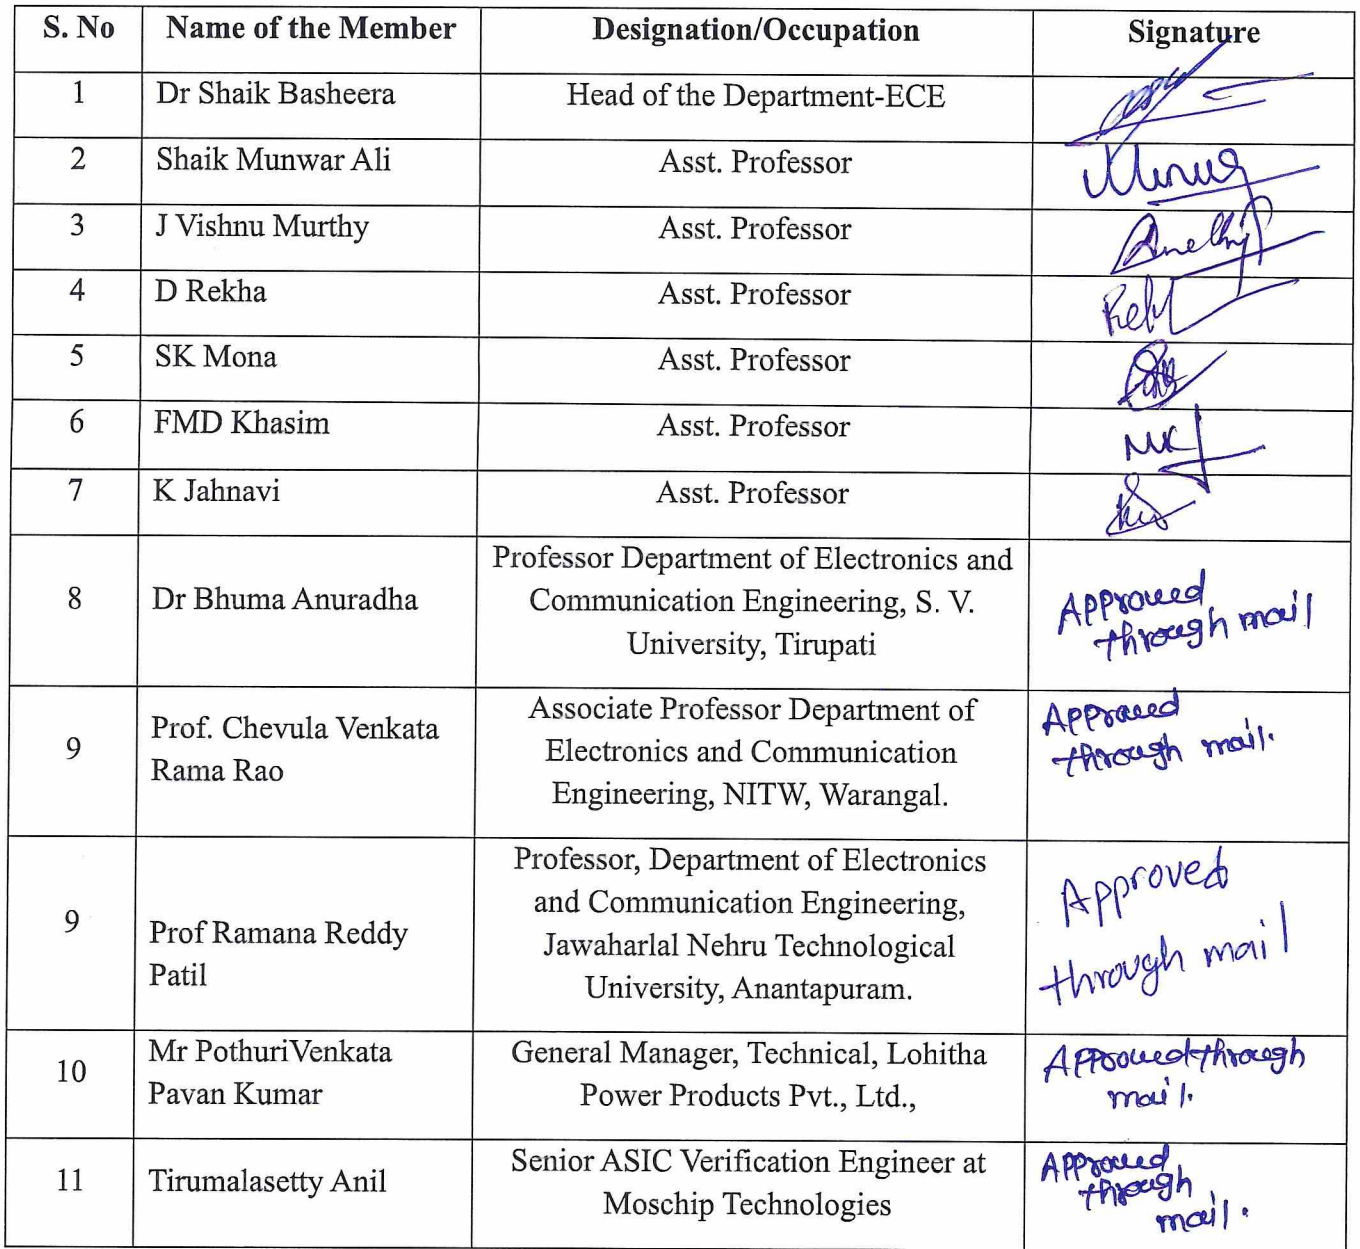 S. No Name of the Member Designation/Occupation Signature
1 Dr Shaik Basheera Head of the Department-ECE
2 Shaik Munwar Ali Asst. Professor
3 J Vishnu Murthy Asst. Professor
4 D Rekha Asst. Professor
5 SK Mona Asst. Professor
6 FMD Khasim Asst. Professor
7 K Jahnavi Asst. Professor
8 Dr Bhuma Anuradha
Professor Department of Electronics and
Communication Engineering, S. V.
University, Tirupati
Approved
through mail
9
Prof. Chevula Venkata
Rama Rao
Associate Professor Department of
Electronics and Communication
Engineering, NITW, Warangal.
Approved
through mail.
9
Prof Ramana Reddy
Patil
Professor, Department of Electronics
and Communication Engineering,
Jawaharlal Nehru Technological
University, Anantapuram.
Approved
through mail
10
Mr PothuriVenkata
Pavan Kumar
General Manager, Technical, Lohitha
Power Products Pvt., Ltd.,
Approved through
mail.
11
Tirumalasetty Anil
Senior ASIC Verification Engineer at
Moschip Technologies
Approved
through
mail.